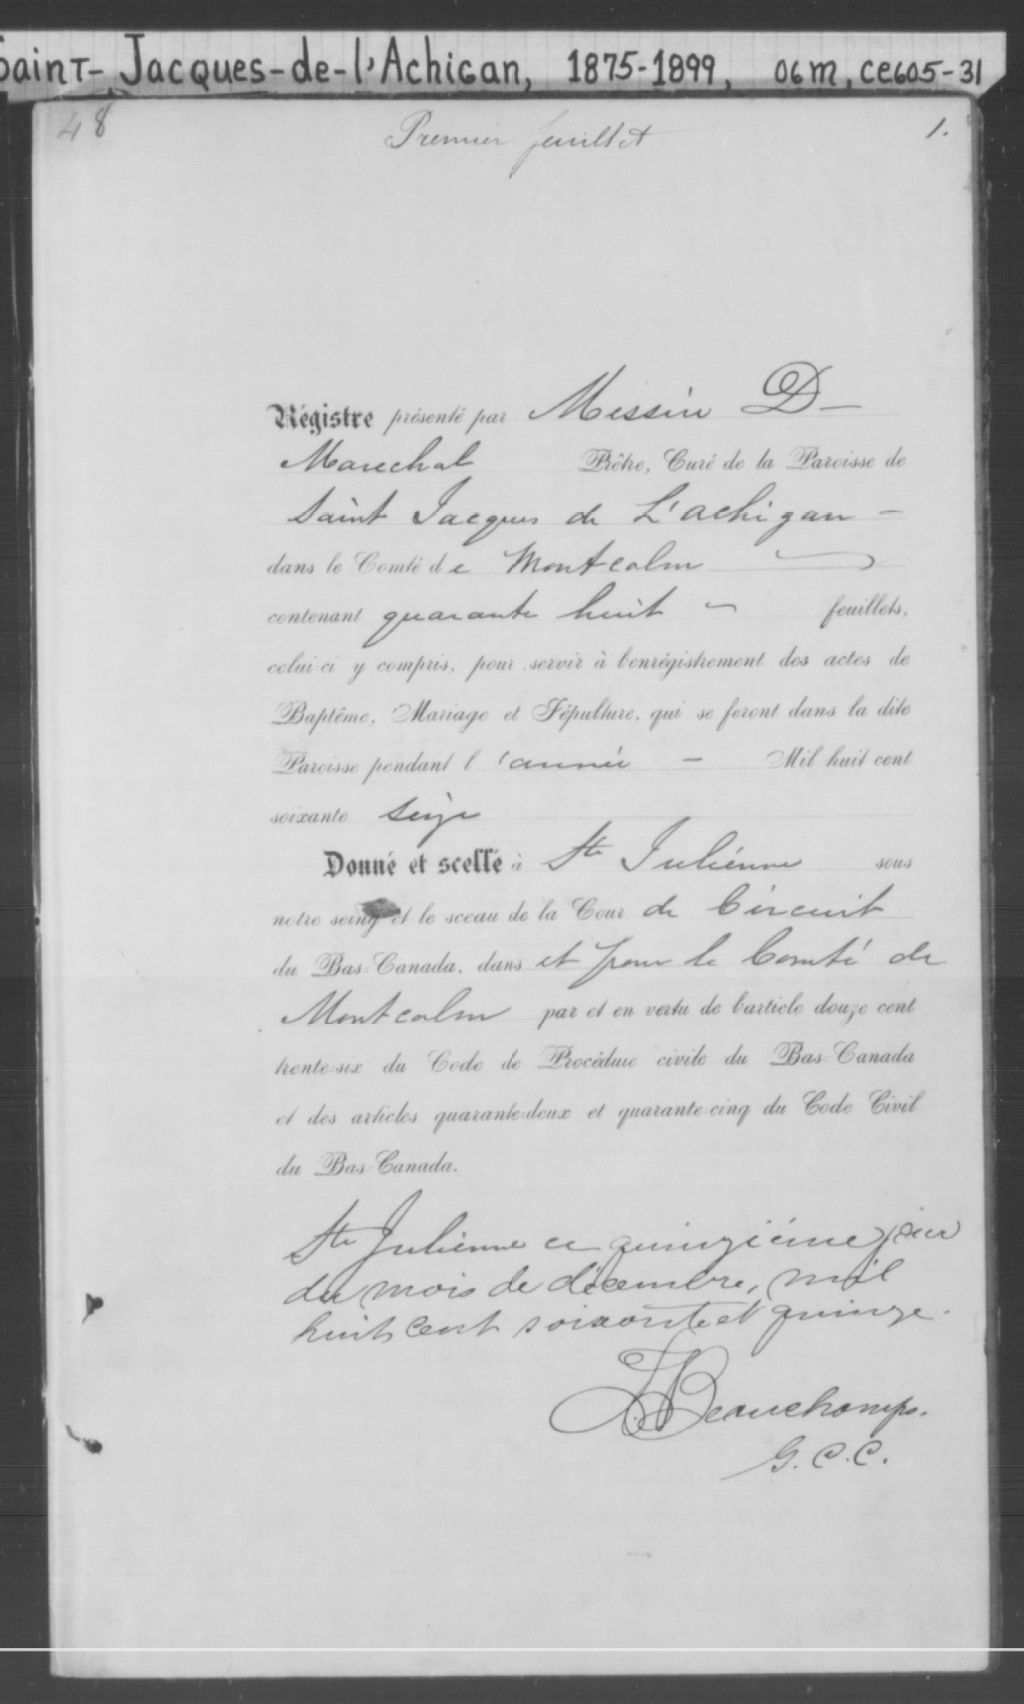 Saint-Jacques-de-l'Achigan, 1875-1899, 06m, CE605-31
48
Premier feuillet
1.
Régistre présenté par Messire D-
Marechal Prêtre, Curé de la Paroisse de
Saint Jacques de L'achigan -
dans le Comté de Montcalm
contenant quarante huit - feuillets,
celui-ci y compris, pour servir à l'enrégistrement des actes de
Baptême, Mariage et Sépulture, qui se feront dans la dite
Paroisse pendant l'année - Mil huit cent
soixante seize
Donné et scellé à Ste Julienne sous
notre seing et le sceau de la Cour de Circuit
du Bas-Canada, dans et pour le Comté de
Montcalm par et en vertu de l'article douze cent
trente-six du Code de Procédure civile du Bas-Canada
et des articles quarante-deux et quarante-cinq du Code Civil
du Bas-Canada.
Ste Julienne ce quinzième jour
du mois de décembre, mil
huit cent soixante et quinze.
Beauchamp.
G. C. C.